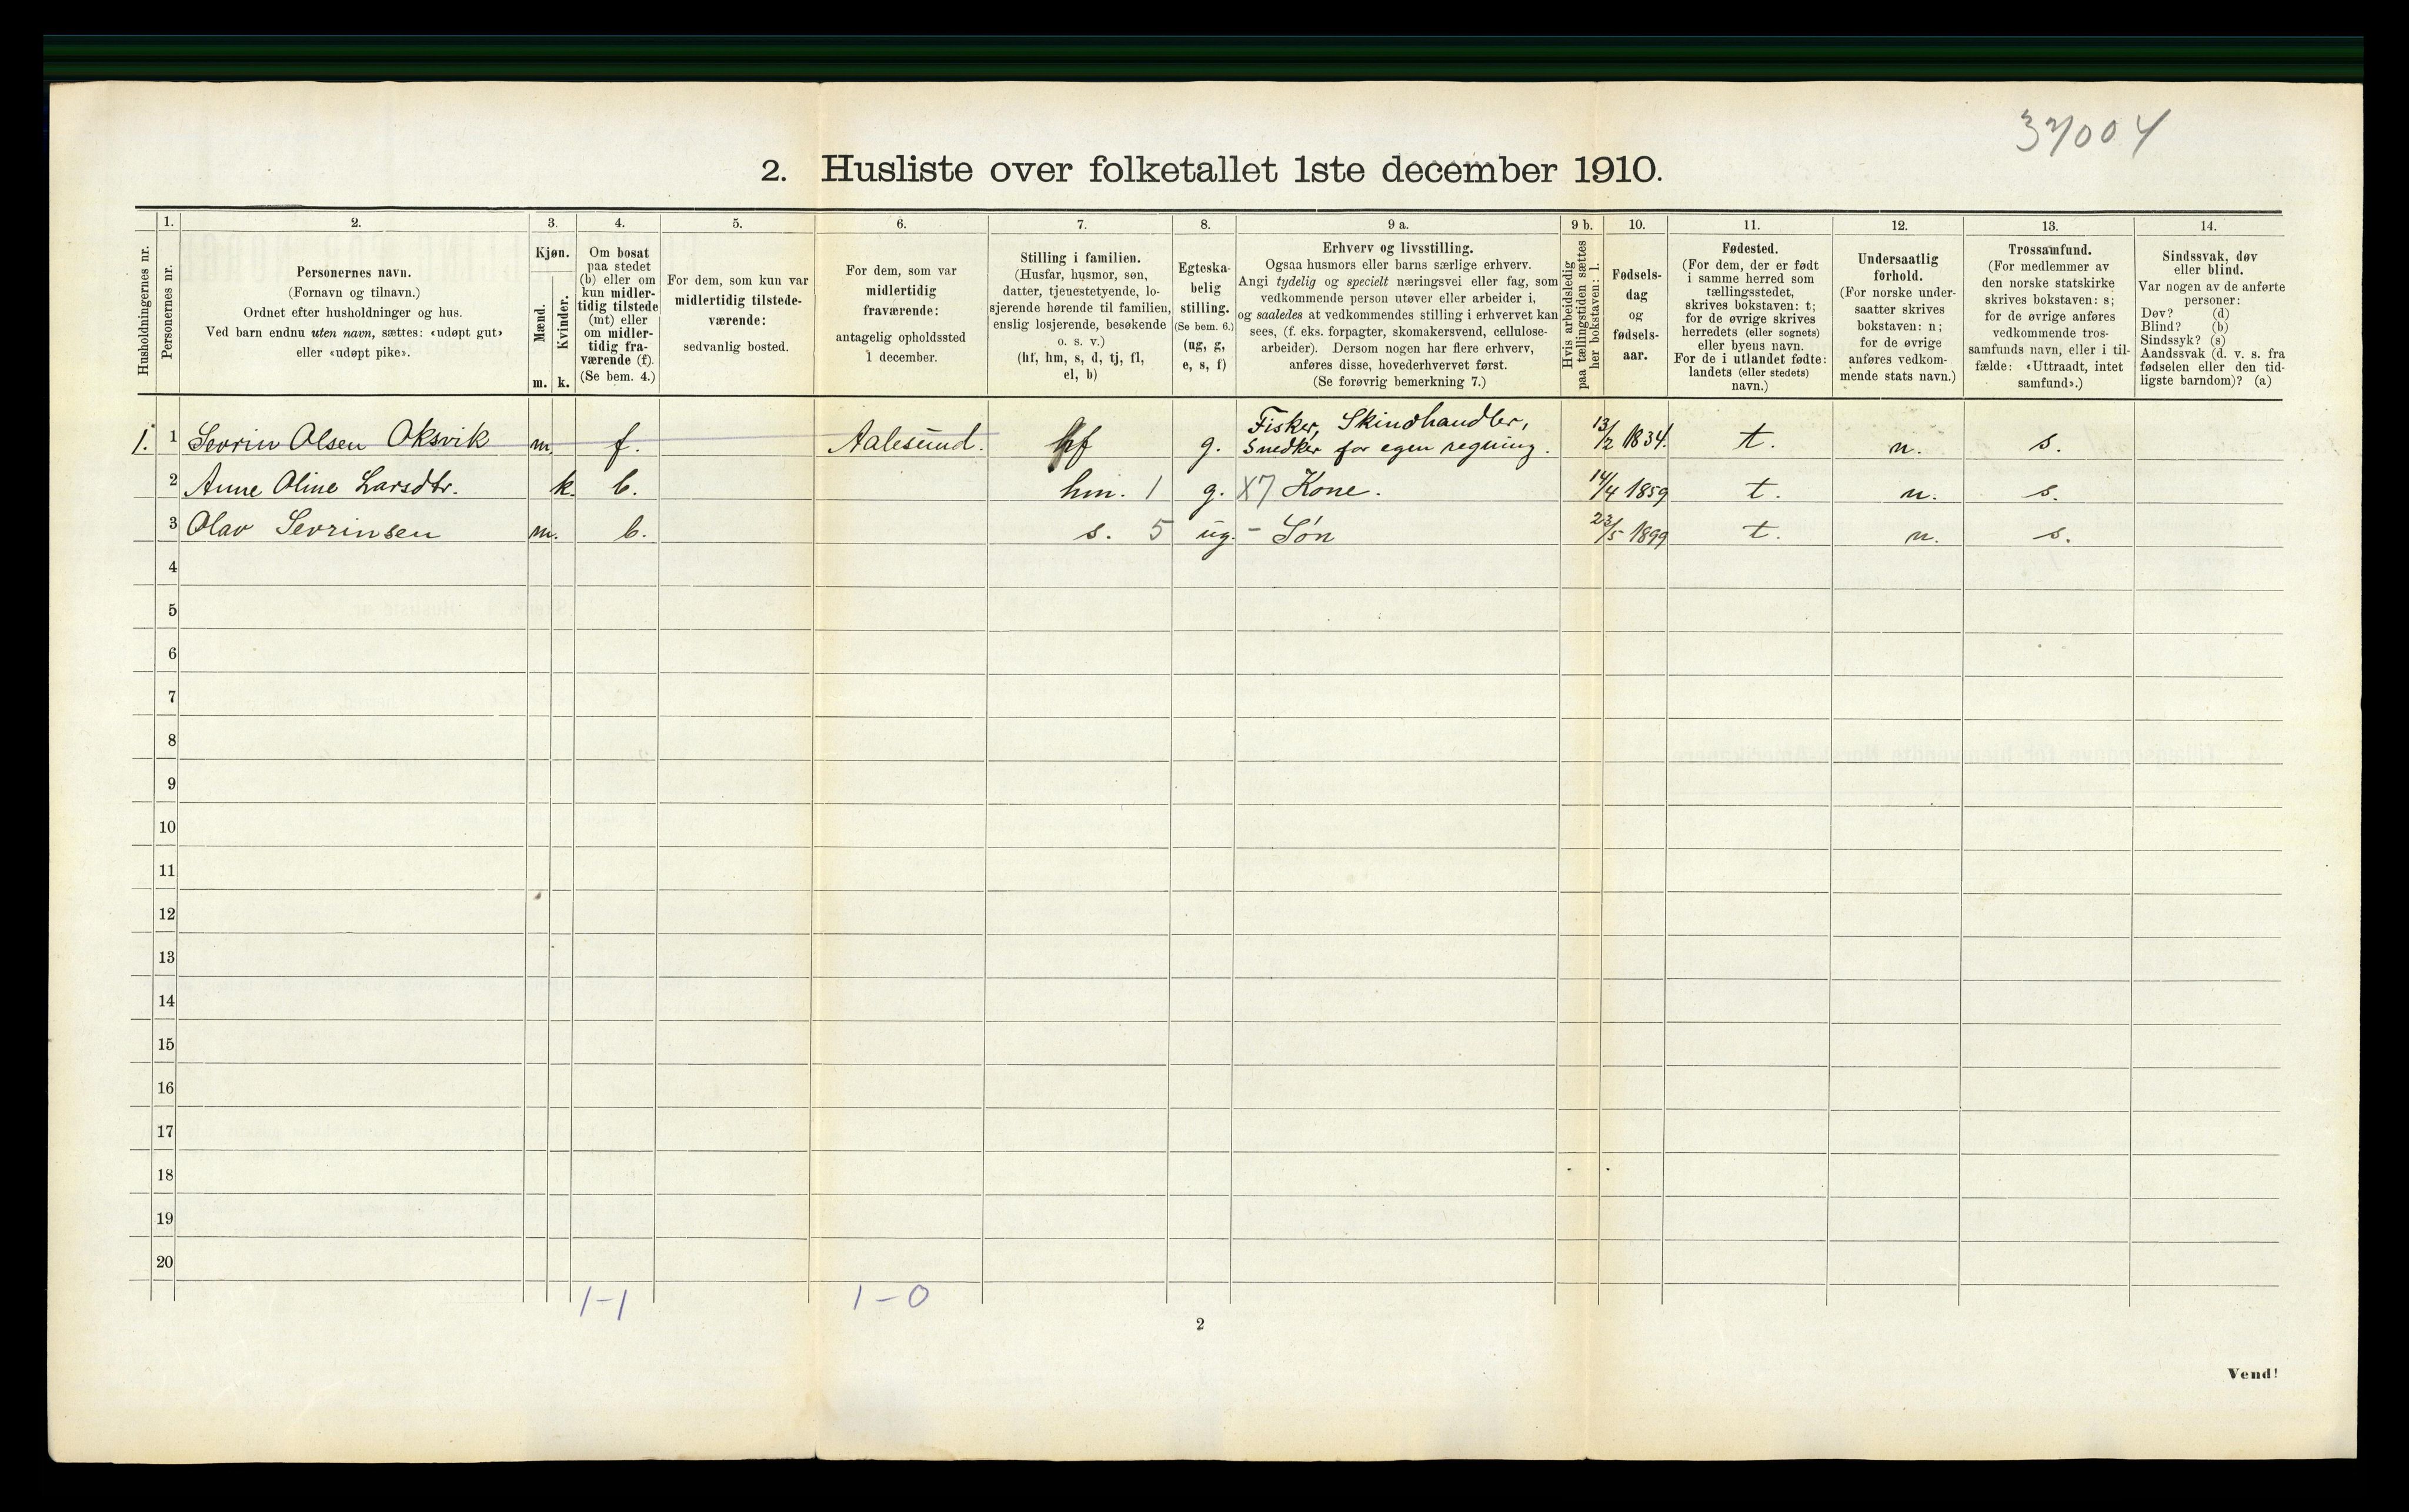 37004
2. Husliste over folketallet 1ste december 1910.
Husholdningernes nr.
1.
Personernes nr.
2.
Personernes navn.
(Fornavn og tilnavn.)
Ordnet efter husholdninger og hus.
Ved barn endnu uten navn, sættes: «udøpt gut»
eller «udøpt pike».
3.
Kjøn.
Mænd.
Kvinder.
m. k.
4.
Om bosat
paa stedet
(b) eller om
kun midler-
tidig tilstede
(mt) eller
om midler-
tidig fra-
værende (f).
(Se bem. 4.)
5.
For dem, som kun var
midlertidig tilstede-
værende:
sedvanlig bosted.
6.
For dem, som var
midlertidig
fraværende:
antagelig opholdssted
1 december.
7.
Stilling i familien.
(Husfar, husmor, søn,
datter, tjenestetyende, lo-
sjerende hørende til familien,
enslig losjerende, besøkende
o. s. v.)
(hf, hm, s, d, tj, fl,
el, b)
8.
Egteska-
belig
stilling.
(Se bem. 6.)
(ug, g,
e, s, f)
9 a.
Erhverv og livsstilling.
Ogsaa husmors eller barns særlige erhverv.
Angi tydelig og specielt næringsvei eller fag, som
vedkommende person utøver eller arbeider i,
og saaledes at vedkommendes stilling i erhvervet kan
sees, (f. eks. forpagter, skomakersvend, cellulose-
arbeider). Dersom nogen har flere erhverv,
anføres disse, hovederhvervet først.
(Se forøvrig bemerkning 7.)
9 b.
Hvis arbeidsledig
paa tællingstiden sættes
her bokstaven: l.
10.
Fødsels-
dag
og
fødsels-
aar.
11.
Fødested.
(For dem, der er født
i samme herred som
tællingsstedet,
skrives bokstaven: t;
for de øvrige skrives
herredets (eller sognets)
eller byens navn.
For de i utlandet fødte:
landets (eller stedets)
navn.)
12.
Undersaatlig
forhold.
(For norske under-
saatter skrives
bokstaven: n;
for de øvrige
anføres vedkom-
mende stats navn.)
13.
Trossamfund.
(For medlemmer av
den norske statskirke
skrives bokstaven: s;
for de øvrige anføres
vedkommende tros-
samfunds navn, eller i til-
fælde: «Uttraadt, intet
samfund».)
14.
Sindssvak, døv
eller blind.
Var nogen av de anførte
personer:
Døv? (d)
Blind? (b)
Sindssyk? (s)
Aandssvak (d. v. s. fra
fødselen eller den tid-
ligste barndom)? (a)
1. 1 Sevrin Olsen Oksvik m. f. Aalesund. hf g. Fisker, Skindhandler,
Snedker for egen regning. 13/2 1834. t. n. s.
2 Anne Oline Larsdtr. k. b. hm. 1 g. X7 Kone. 14/4 1859 t. n. s.
3 Olav Sevrinsen m. b. s. 5 ug. - Søn 23/5 1899 t. n. s.
4
5
6
7
8
9
10
11
12
13
14
15
16
17
18
19
20
1-1 1-0
2
Vend!